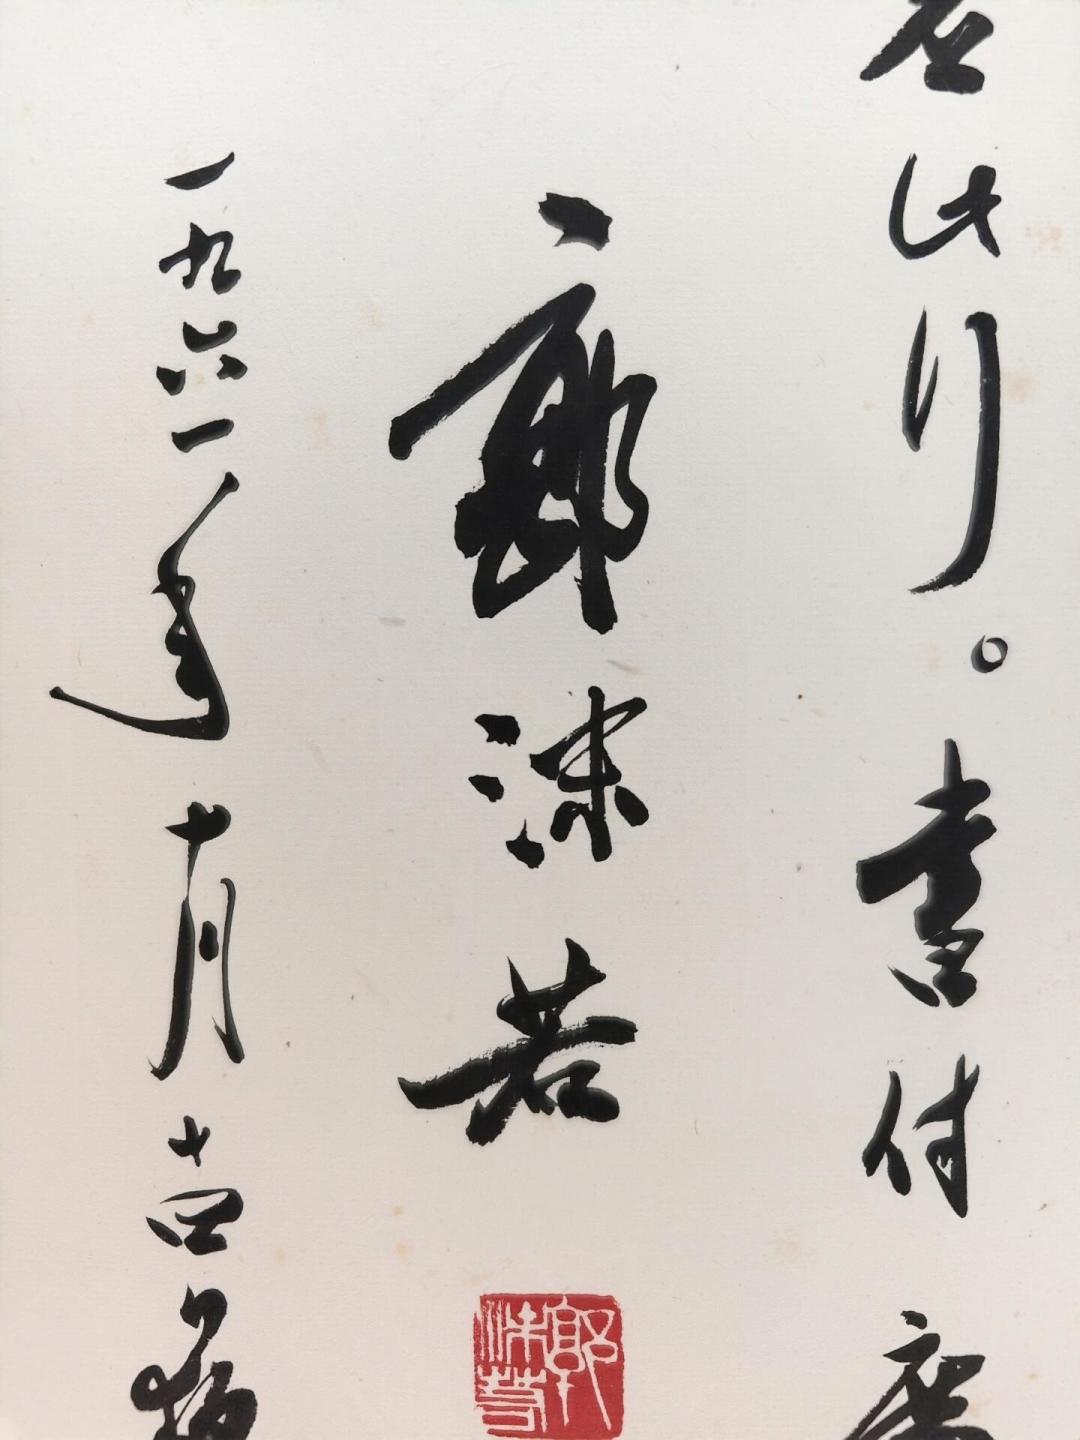 此行。書付
郭沫若
郭沫若
一九六一年十月十四日